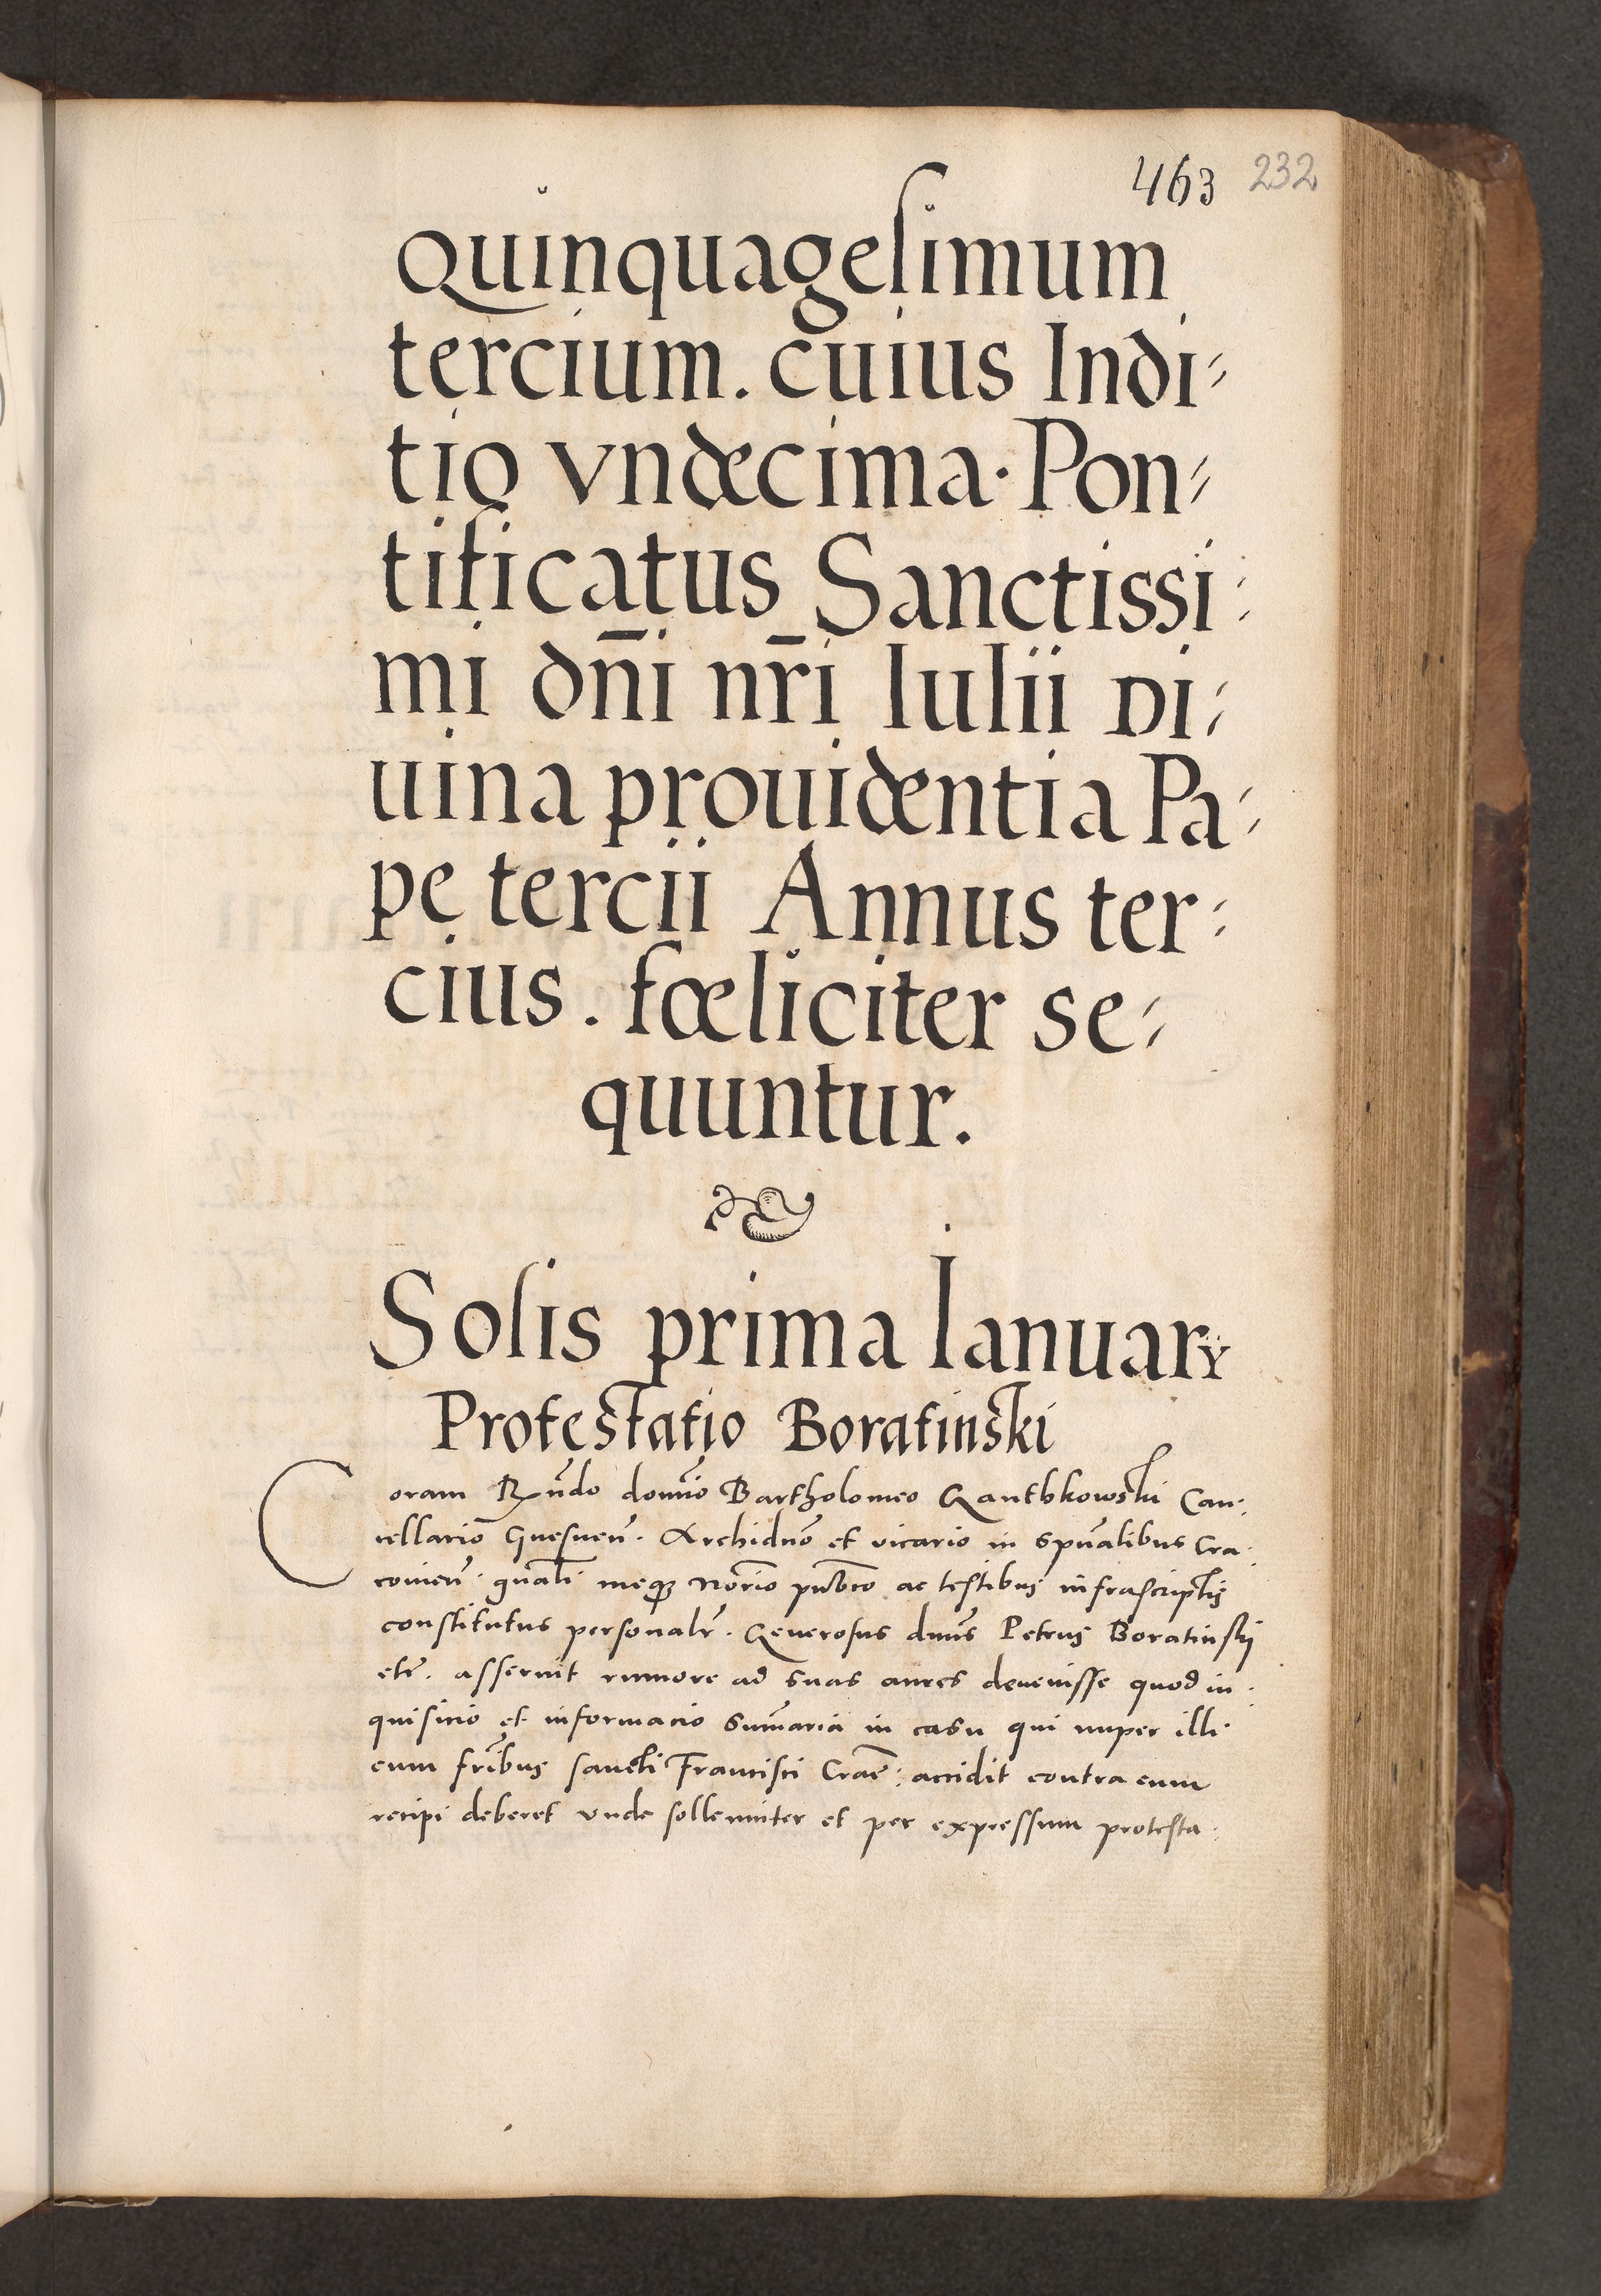 463 232
Quinquagesimum
tercium. cuius Indi⸗
tio vndecima. Pon⸗
tificatus Sanctissi⸗
mi dn̄i nr̄i Iulii Di⸗
uina prouidentia Pa⸗
pę tercii Annus ter⸗
cius. fœliciter se⸗
quuntur.
Solis prima Ianuarÿ
Protestatio Boratinski
Coram Rn̄do domīo Bartholomeo Gantbkowski Can⸗
cellario Gnesnen̄. Archidnō et vicario in spūalibus Cra⸗
couien̄. gn̄ali meqꝫ Notrio pub̄co ac testibus infrascriptis
constitutus personalr̄. Generosus dnūs Petrus Boratinskj
etc̄. asseruit rumore ad suas aures deuenisse quod in⸗
quisicio et informacio sum̄aria in casu qui nuper illi
cum fr̄ibus sancti Francisci Crac̄. accidit contra eum
recipi deberet vnde sollemniter et per expressum protesta⸗